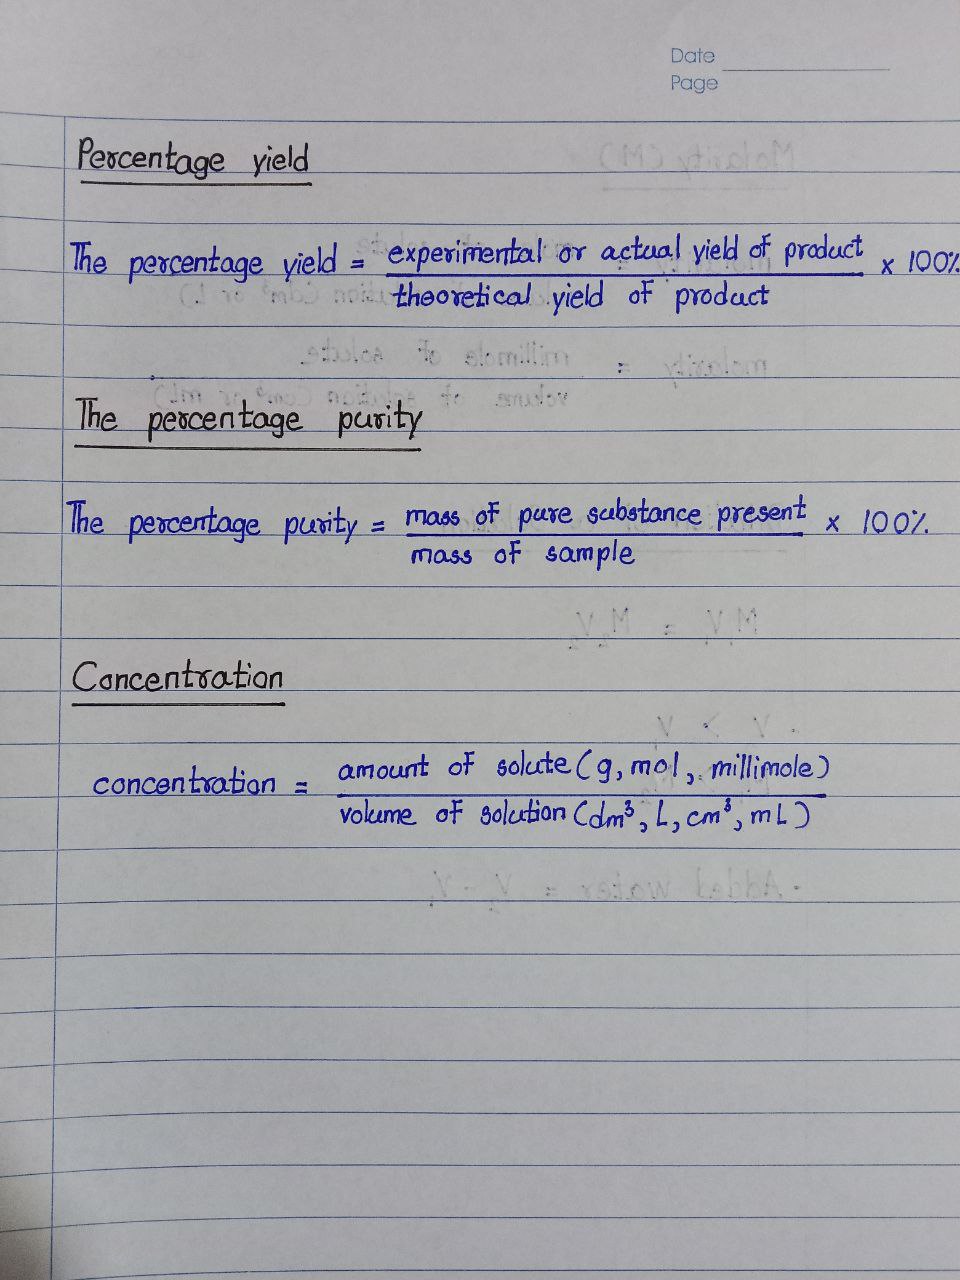 Date
Page
Percentage yield
The percentage yield = experimental or actual yield of product / theoretical yield of product × 100%
The percentage purity
The percentage purity = mass of pure substance present / mass of sample × 100%
Concentration
concentration = amount of solute (g, mol, millimole) / volume of solution (dm³, L, cm³, mL)